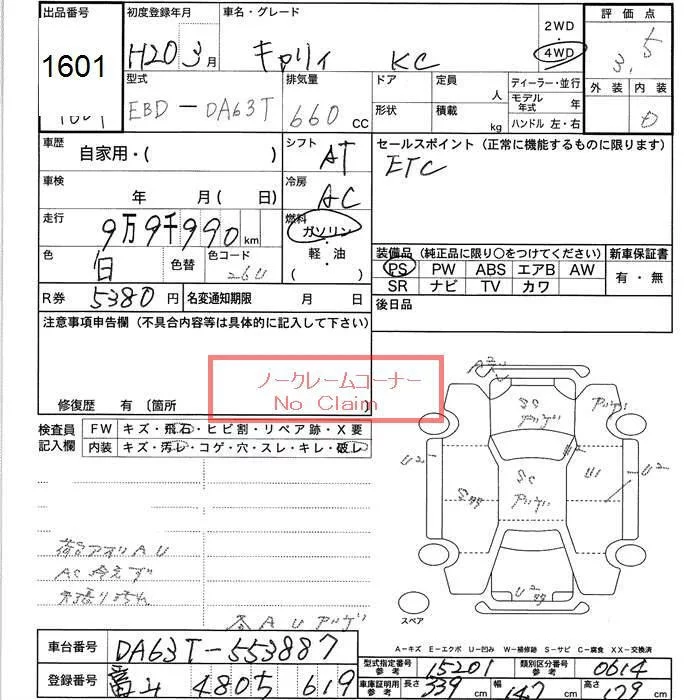 出品番号 初度登録年月 車名・グレード 評価点
1601
H20 3月 キャリィ KC 2WD 4WD 3.5
型式 排気量 ドア 定員 人 ディーラー・並行 外装 内装
EBD-DA63T 660 CC 形状 積載 kg モデル年式 年 ハンドル 左・右 D
車歴 自家用・( ) シフト AT セールスポイント(正常に機能するものに限ります)
ETC
車検 年 月( 日) 冷房 AC
走行 9万9千990 km 燃料 ガソリン・軽油・( )
色 白 色替 色コード 26U
装備品(純正品に限り○をつけてください) 新車保証書
PS PW ABS エアB AW 有・無
SR ナビ TV カワ
R券 5380円 名変通知期限 月 日 後日品
注意事項申告欄(不具合内容等は具体的に記入して下さい)
ノークレームコーナー
No Claim
修復歴 有〔箇所 〕
検査員記入欄 FW キズ・飛石・ヒビ割・リペア跡・X要
内装 キズ・汚レ・コゲ・穴・スレ・キレ・破レ
U2 U1 U2
SC
SC
U2
荷台アオリAU
AC冷えず
スペア
A-キズ E-エクボ U-凹み W-補修跡 S-サビ C-腐食 XX-交換済
車台番号 DA63T-553887
型式指定番号参考 15201 類別区分番号参考 0614
登録番号 480 619
車庫証明用参考 長さ 339 cm 幅 147 cm 高さ cm